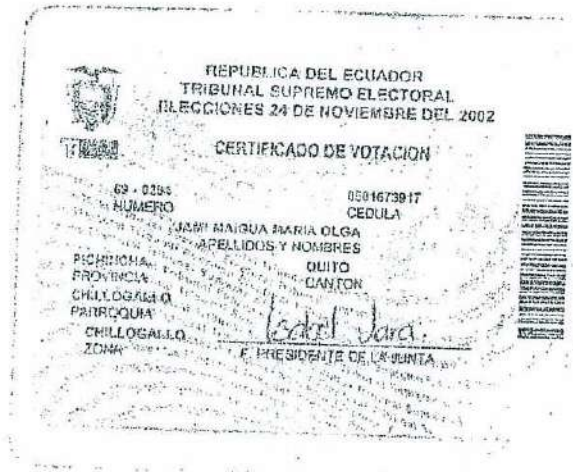 REPUBLICA DEL ECUADOR
TRIBUNAL SUPREMO ELECTORAL
ELECCIONES 24 DE NOVIEMBRE DEL 2002
CERTIFICADO DE VOTACION
69 - 0394 0501673917
NUMERO CEDULA
JAMI MAIGUA MARIA OLGA
APELLIDOS Y NOMBRES
PICHINCHA QUITO
PROVINCIA CANTON
CHILLOGALLO
PARROQUIA
CHILLOGALLO Isabel Jara.
ZONA F. PRESIDENTE DE LA JUNTA